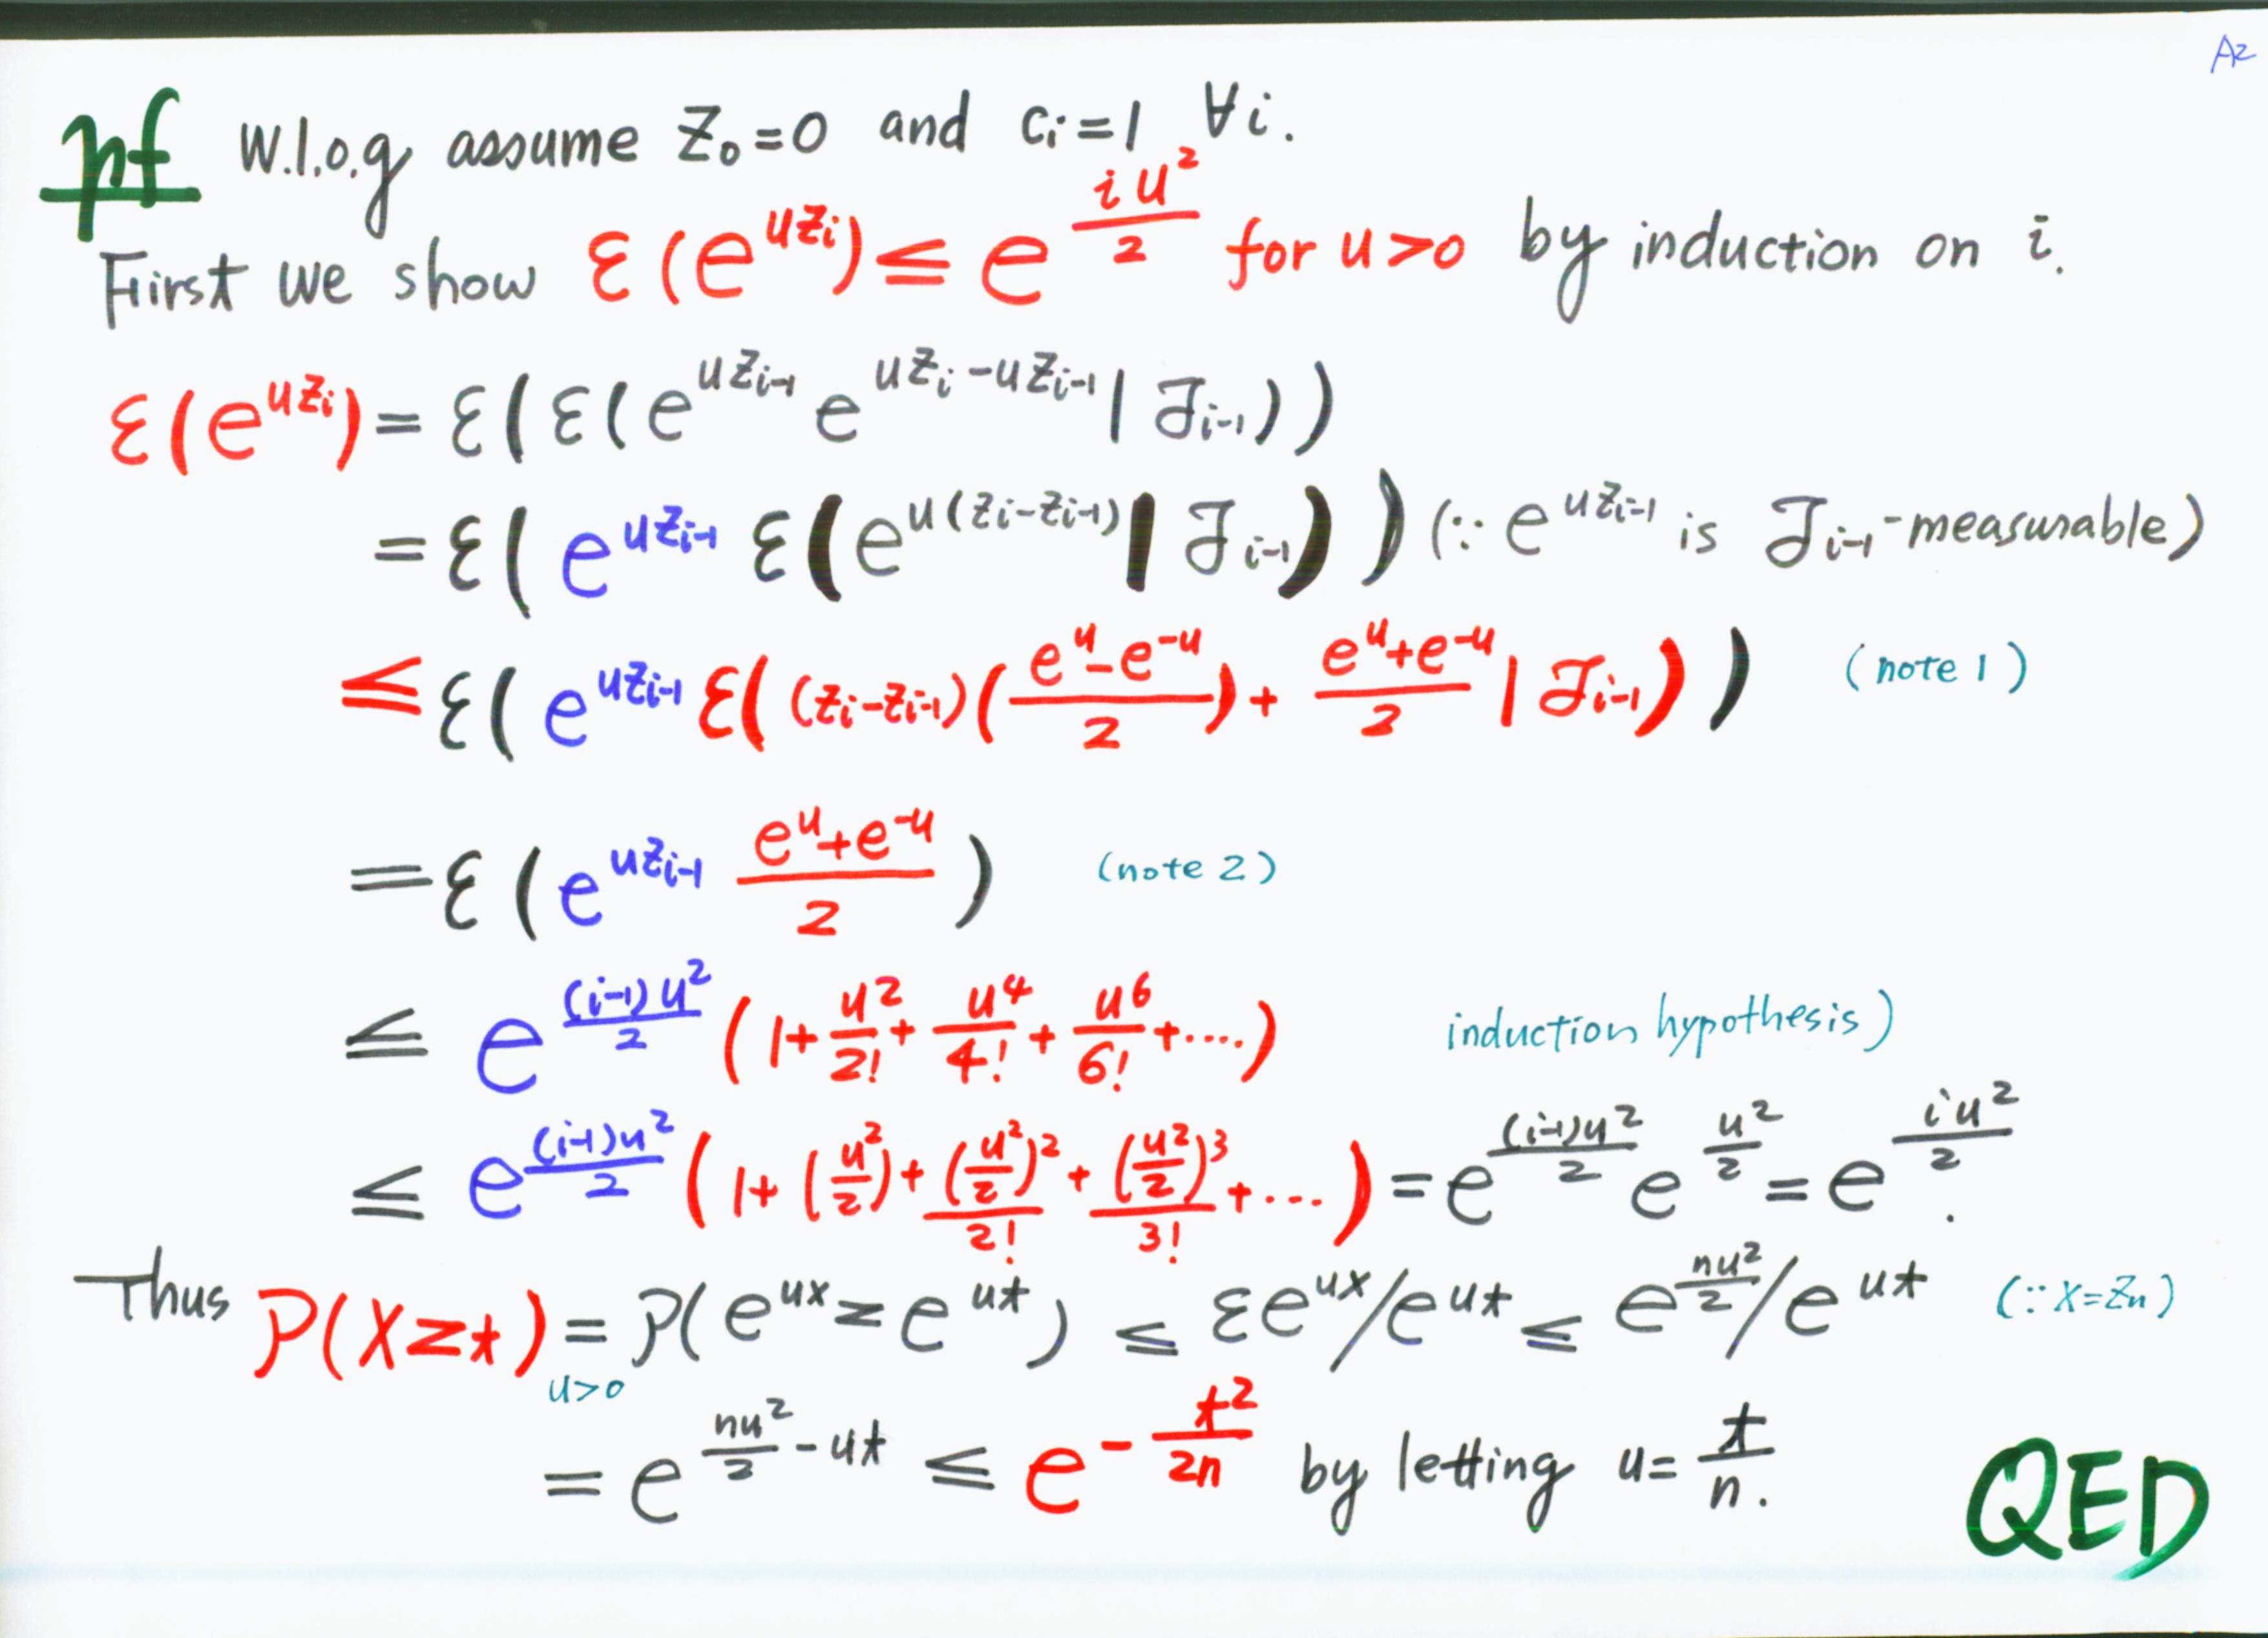 A2
pf W.l.o.g assume Z₀=0 and cᵢ=1 ∀i.
First we show ε(e^{uZᵢ}) ≤ e^{iu²/2} for u>0 by induction on i.
ε(e^{uZᵢ}) = ε(ε(e^{uZ_{i-1}} e^{uZᵢ-uZ_{i-1}} | ℱ_{i-1}))
= ε(e^{uZ_{i-1}} ε(e^{u(Zᵢ-Z_{i-1})} | ℱ_{i-1})) (∵ e^{uZ_{i-1}} is ℱ_{i-1}-measurable)
≤ ε(e^{uZ_{i-1}} ε((Zᵢ-Z_{i-1})((e^u-e^{-u})/2) + (e^u+e^{-u})/2 | ℱ_{i-1})) (note 1)
= ε(e^{uZ_{i-1}} (e^u+e^{-u})/2) (note 2)
≤ e^{(i-1)u²/2} (1+u²/2!+u⁴/4!+u⁶/6!+....) induction hypothesis)
≤ e^{(i-1)u²/2} (1+(u²/2)+(u²/2)²/2!+(u²/2)³/3!+...) = e^{(i-1)u²/2} e^{u²/2} = e^{iu²/2}.
Thus P(X≥t) = P(e^{ux}≥e^{ut}) ≤ εe^{ux}/e^{ut} ≤ e^{nu²/2}/e^{ut} (∵X=Zn)
u>0
= e^{nu²/2-ut} ≤ e^{-t²/2n} by letting u=t/n.
QED